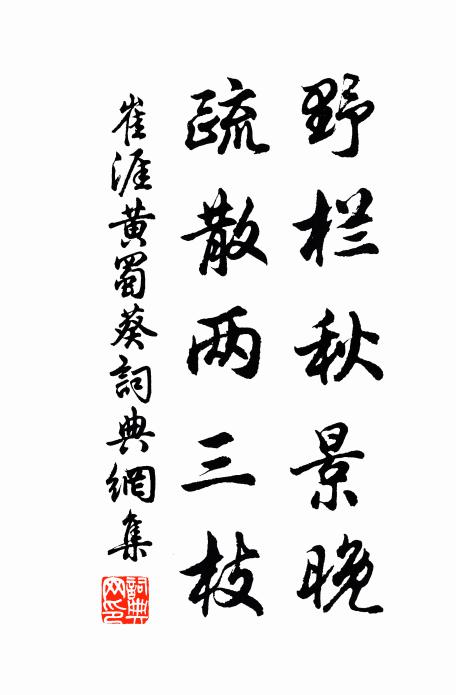 野栏秋景晚
疏散两三枝
崔涯黄蜀葵詞典網集
詞典網印